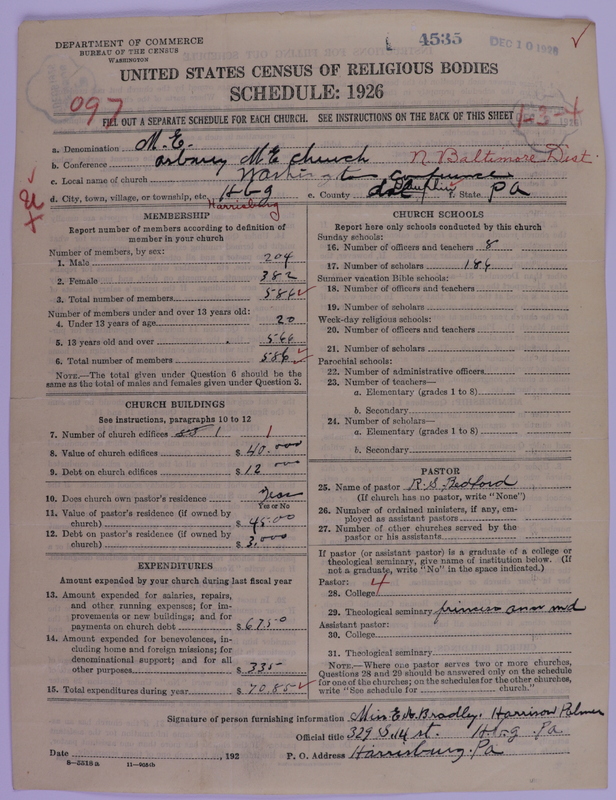 DEPARTMENT OF COMMERCE
BUREAU OF THE CENSUS
WASHINGTON
4535
DEC 10 1926
UNITED STATES CENSUS OF RELIGIOUS BODIES
SCHEDULE: 1926
097
FILL OUT A SEPARATE SCHEDULE FOR EACH CHURCH. SEE INSTRUCTIONS ON THE BACK OF THIS SHEET
1-3-4
a. Denomination M.E.
b. Conference asbury M E church N. Baltimore Dist.
c. Local name of church Washington conference
d. City, town, village, or township, etc. Hbg Harrisburg e. County Dauphin f. State Pa
MEMBERSHIP
Report number of members according to definition of member in your church
Number of members, by sex:
1. Male 204
2. Female 382
3. Total number of members 586
Number of members under and over 13 years old:
4. Under 13 years of age 20
5. 13 years old and over 566
6. Total number of members 586
NOTE.—The total given under Question 6 should be the same as the total of males and females given under Question 3.
CHURCH BUILDINGS
See instructions, paragraphs 10 to 12
7. Number of church edifices 1 1
8. Value of church edifices $ 40.000
9. Debt on church edifices $ 12 000
10. Does church own pastor's residence
Yes or No
11. Value of pastor's residence (if owned by church) $ 4500
12. Debt on pastor's residence (if owned by church) $ 3,000
EXPENDITURES
Amount expended by your church during last fiscal year
13. Amount expended for salaries, repairs, and other running expenses; for improvements or new buildings; and for payments on church debt $ 6750
14. Amount expended for benevolences, including home and foreign missions; for denominational support; and for all other purposes $ 335
15. Total expenditures during year $ 7085
CHURCH SCHOOLS
Report here only schools conducted by this church
Sunday schools:
16. Number of officers and teachers 8
17. Number of scholars 186
Summer vacation Bible schools:
18. Number of officers and teachers
19. Number of scholars
Week-day religious schools:
20. Number of officers and teachers
21. Number of scholars
Parochial schools:
22. Number of administrative officers
23. Number of teachers—
a. Elementary (grades 1 to 8)
b. Secondary
24. Number of scholars—
a. Elementary (grades 1 to 8)
b. Secondary
PASTOR
25. Name of pastor R. S. Bedford
(If church has no pastor, write "None")
26. Number of ordained ministers, if any, employed as assistant pastors
27. Number of other churches served by the pastor or his assistants
If pastor (or assistant pastor) is a graduate of a college or theological seminary, give name of institution below. (If not a graduate, write "No" in the space indicated.)
Pastor:
28. College 4
29. Theological seminary princess ann md
Assistant pastor:
30. College
31. Theological seminary
NOTE.—Where one pastor serves two or more churches, Questions 28 and 29 should be answered only on the schedule for one of the churches; on the schedules for the other churches, write "See schedule for church."
Signature of person furnishing information Miss E. A. Bradley, Harrison Palmer
Official title 329 S. 14 st. Hbg. Pa
Date , 192 P. O. Address Harrisburg. Pa
8—5518 a 11—9864b